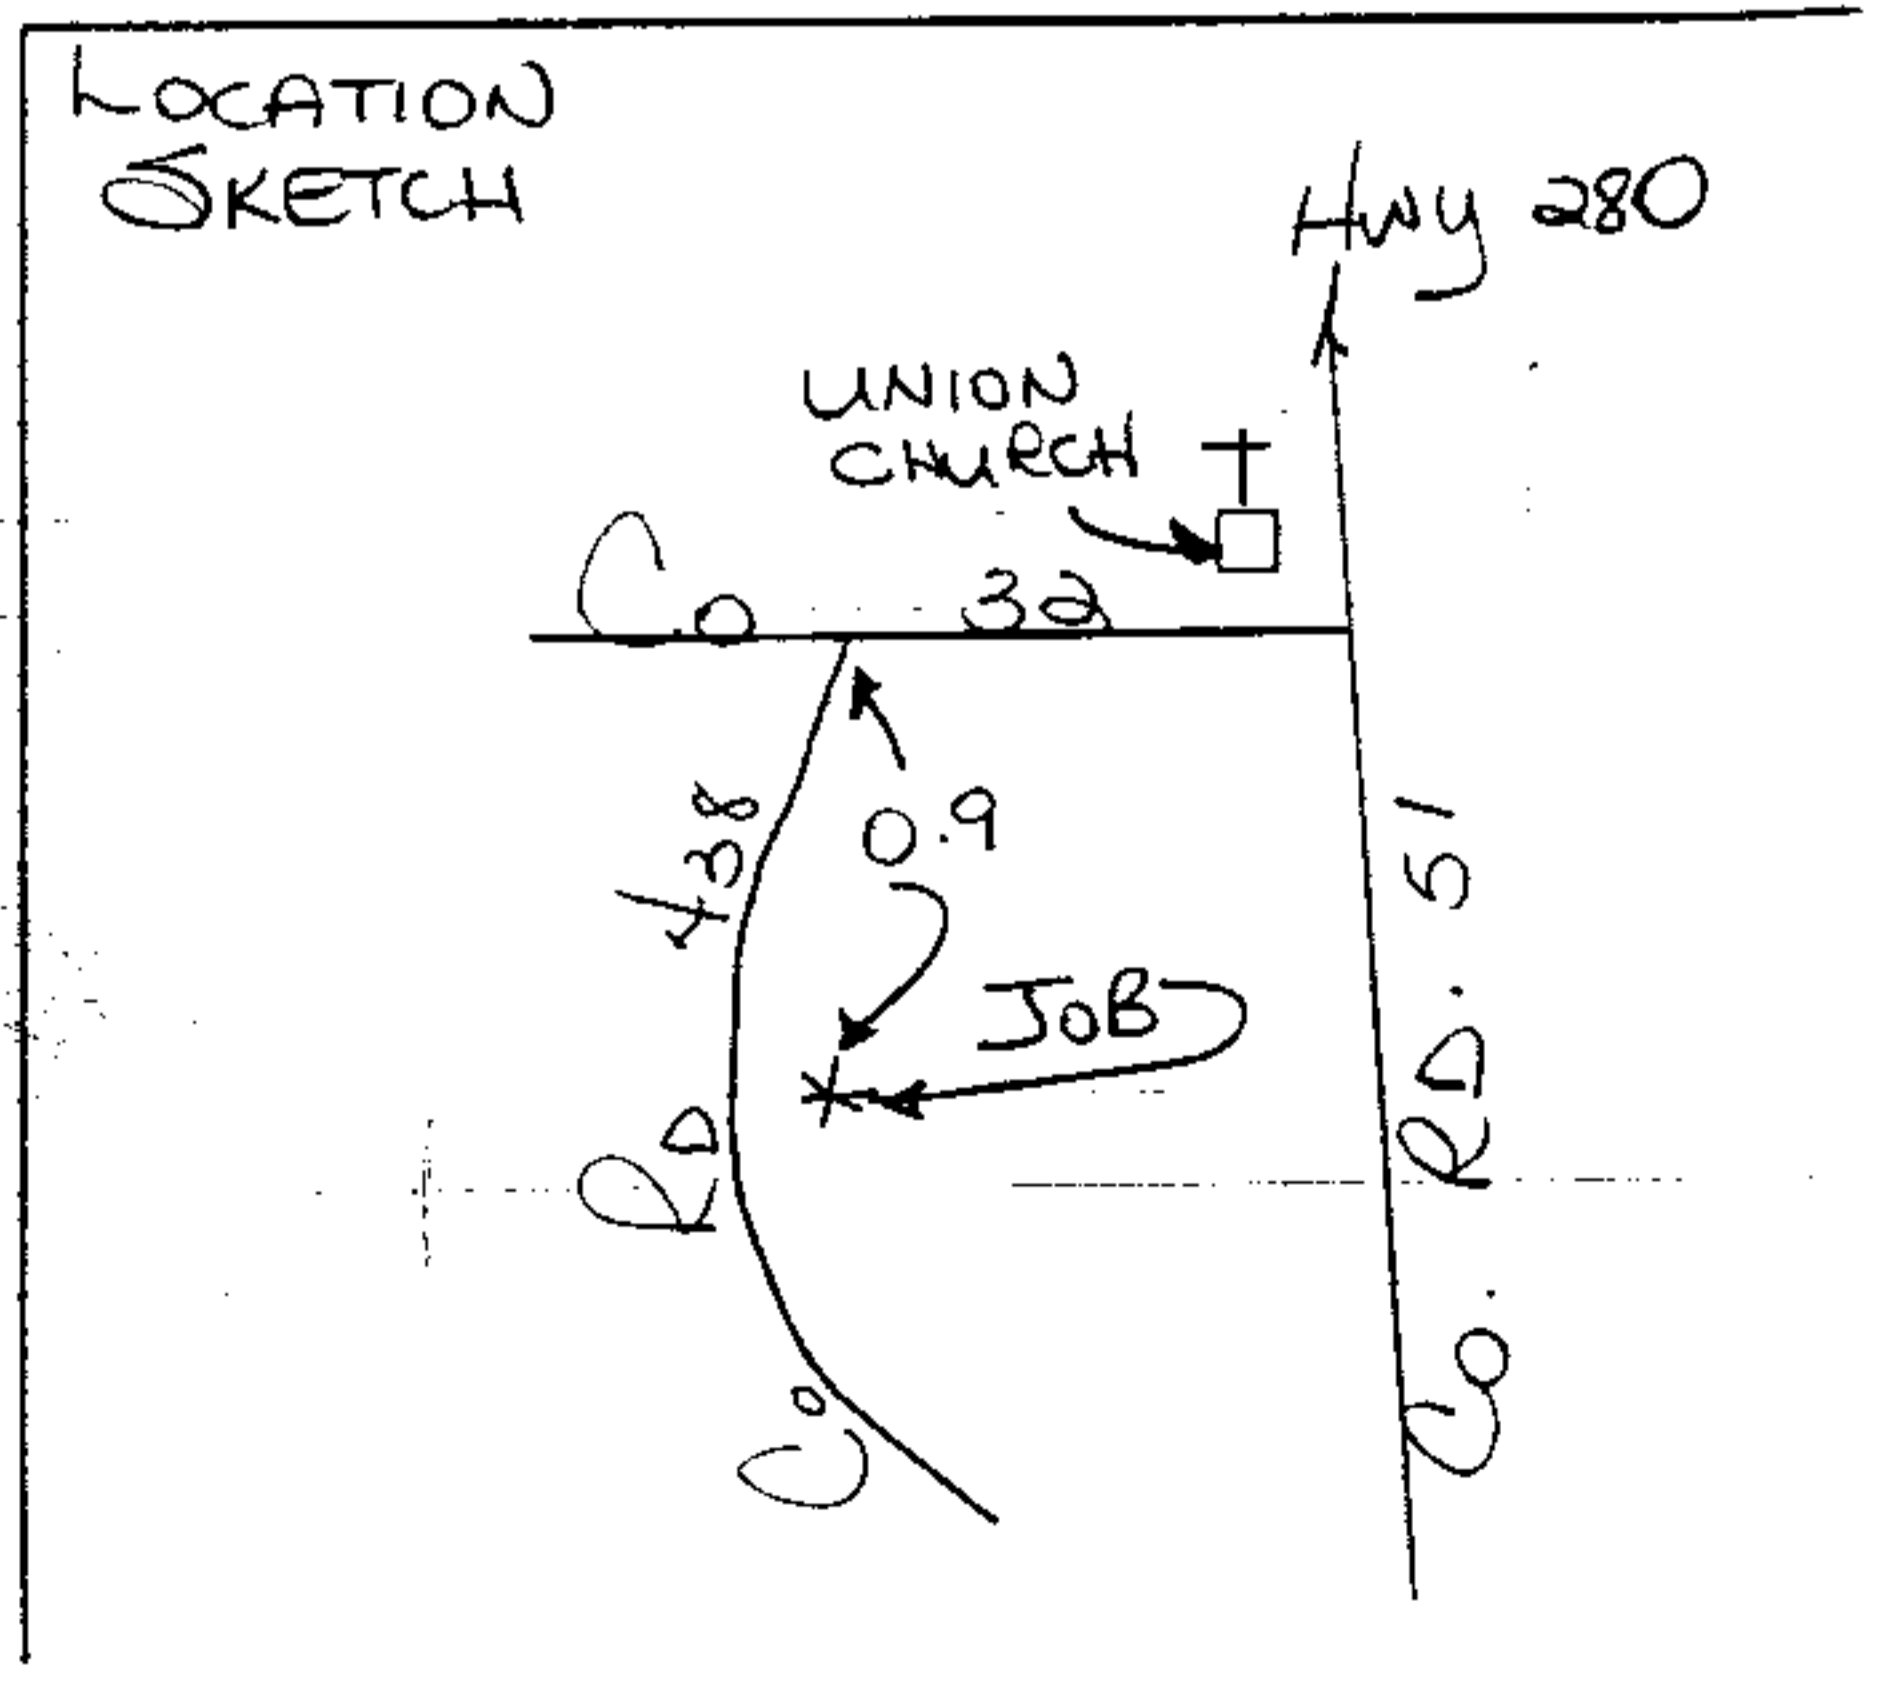 LOCATION
SKETCH
Hwy 280
UNION
CHURCH
Co 32
0.9
JOB
Co RD 438
Co. RD. 51